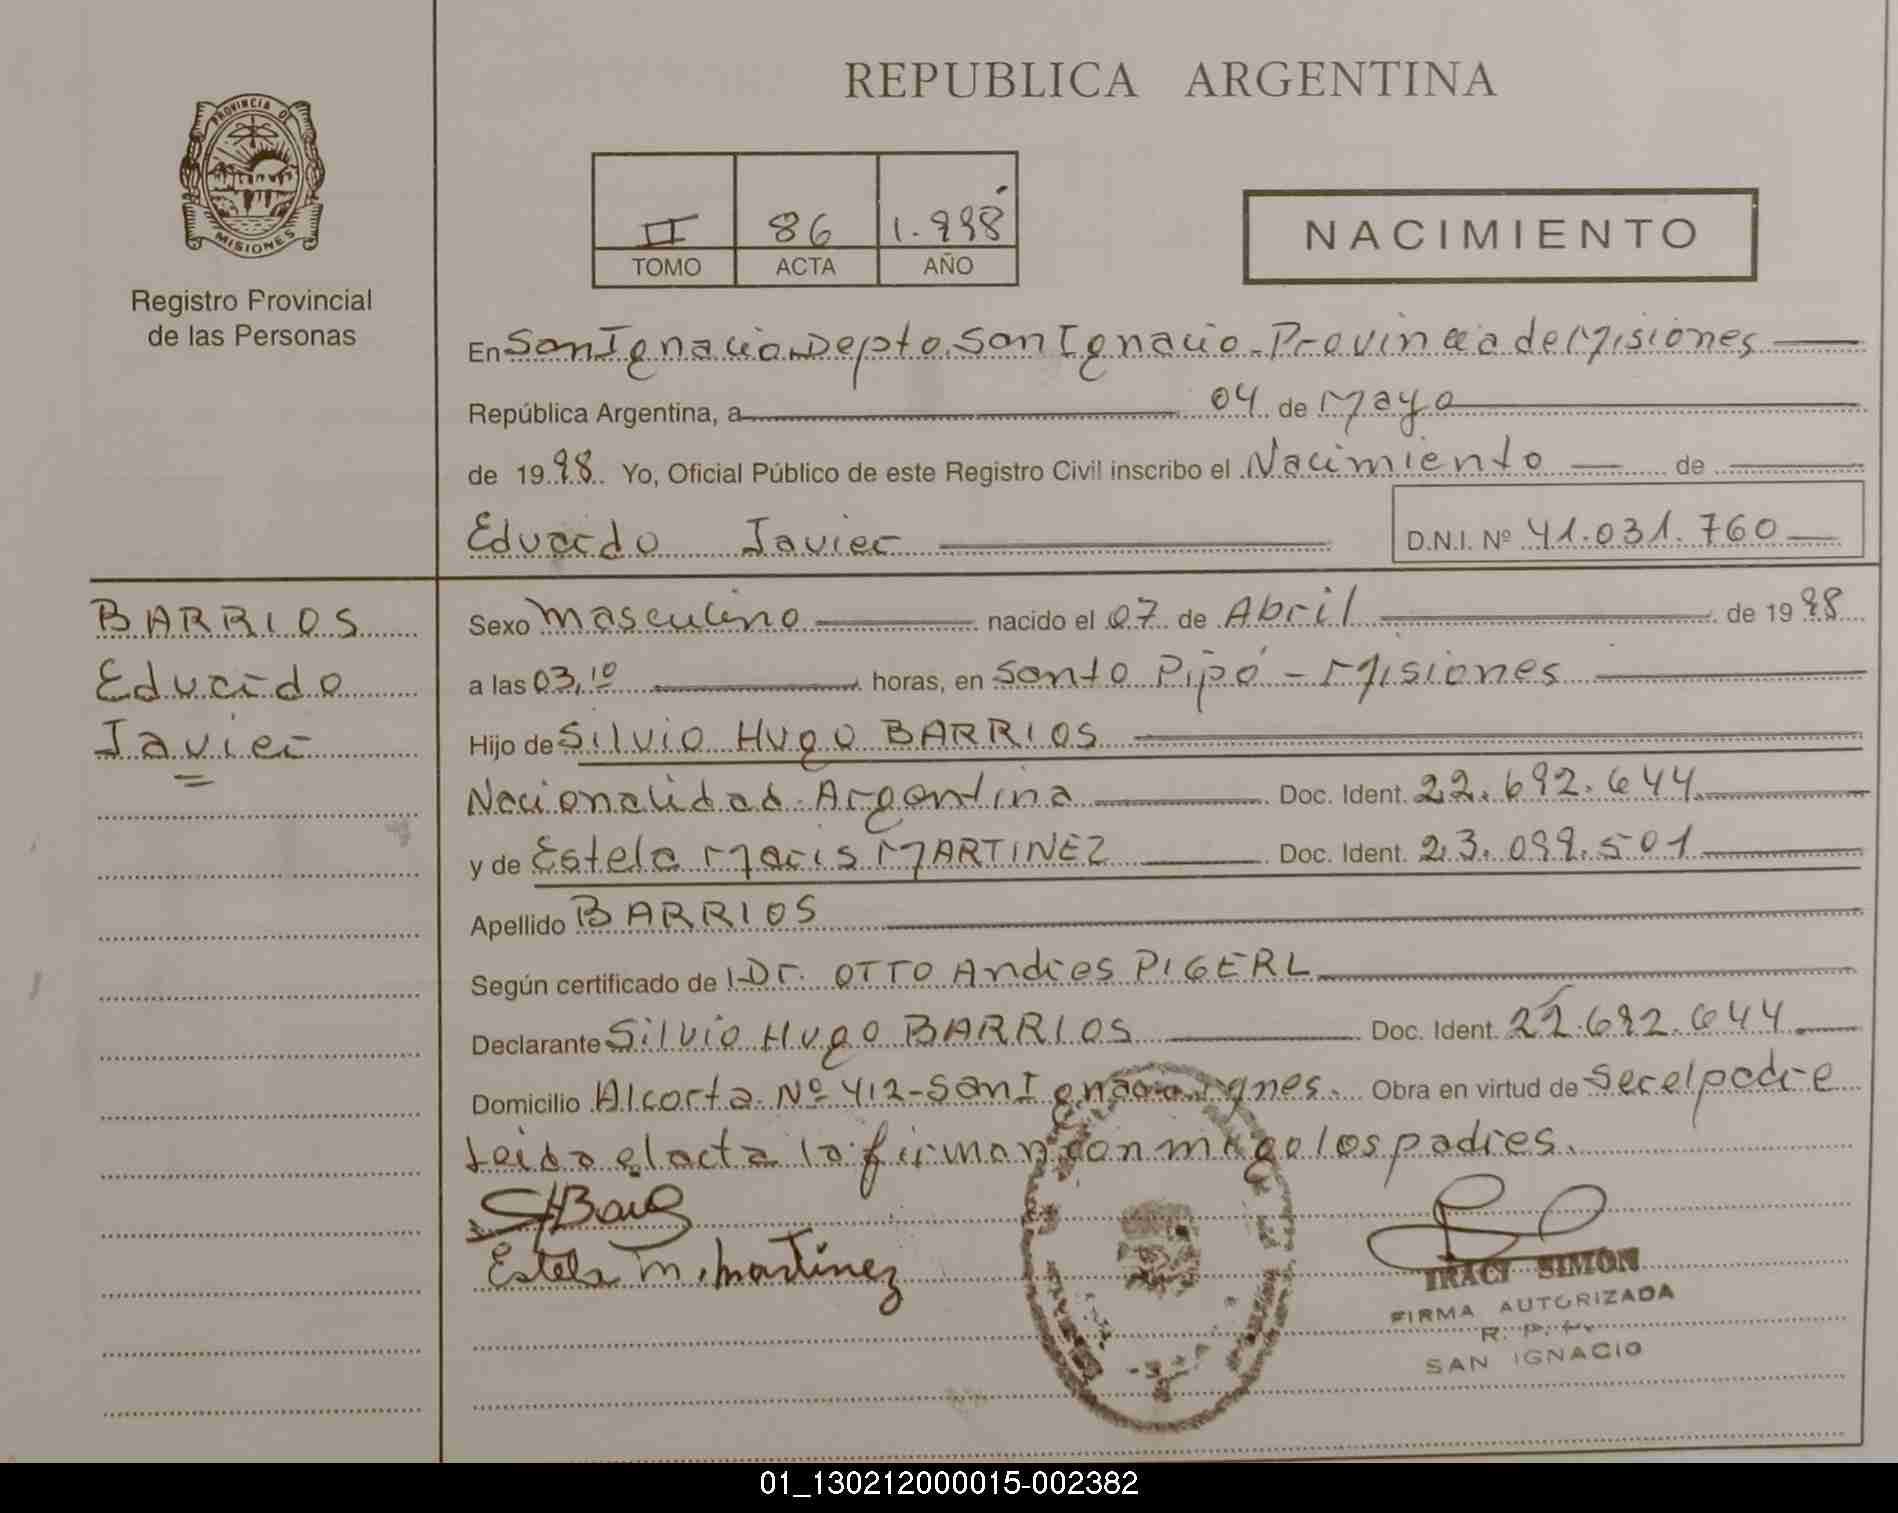 REPUBLICA ARGENTINA
PROVINCIA DE
MISIONES
Registro Provincial
de las Personas
II 86 1.998
TOMO ACTA AÑO
NACIMIENTO
En San Ignacio Depto. San Ignacio - Provincia de Misiones
República Argentina, a 04 de Mayo
de 1998 Yo, Oficial Público de este Registro Civil inscribo el Nacimiento de
Eduardo Javier D.N.I. Nº 41.031.760
BARRIOS
Eduardo
Javier
Sexo Masculino nacido el 07 de Abril de 1998
a las 03,10 horas, en Santo Pipó - Misiones
Hijo de Silvio Hugo BARRIOS
Nacionalidad Argentina Doc. Ident. 22.692.644
y de Estela Maris MARTINEZ Doc. Ident. 23.099.501
Apellido BARRIOS
Según certificado de Dr. OTTO Andres PIGERL
Declarante Silvio Hugo BARRIOS Doc. Ident. 22.692.644
Domicilio Alcorta Nº 412 - San Ignacio Mnes. Obra en virtud de Ser el padre
Leida el acta la firman conmigo los padres.
Estela M. Martinez
IRACI SIMON
FIRMA AUTORIZADA
R. P. P.
SAN IGNACIO
01_130212000015-002382